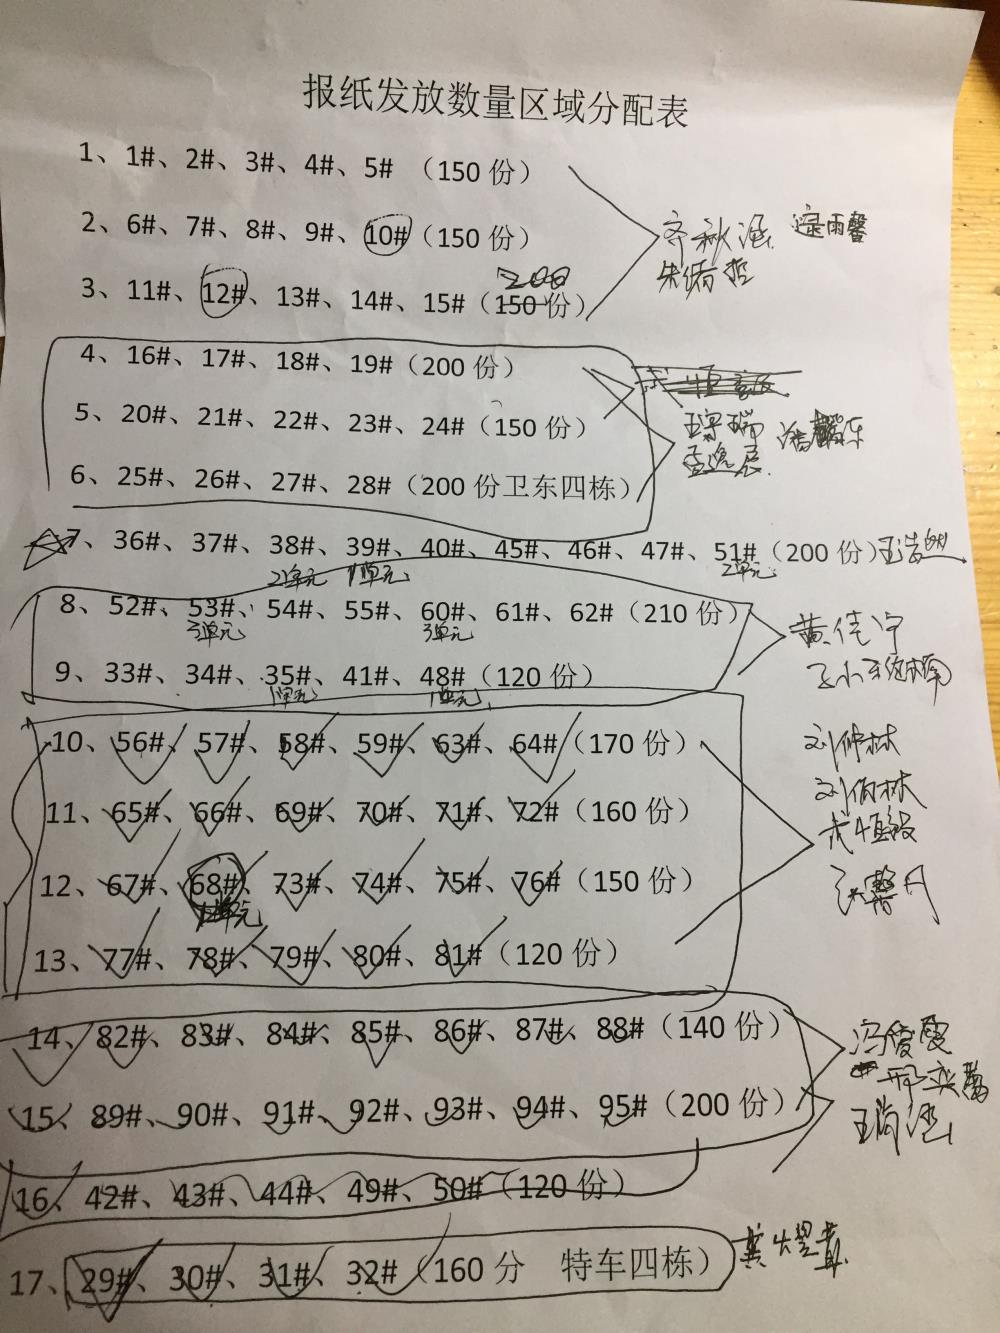 报纸发放数量区域分配表
1、1#、2#、3#、4#、5# （150 份）
2、6#、7#、8#、9#、10#（150 份）
雨馨
200
3、11#、12#、13#、14#、15#（150 份）
4、16#、17#、18#、19#（200 份）
5、20#、21#、22#、23#、24#（150 份）
6、25#、26#、27#、28#（200 份卫东四栋）
7、36#、37#、38#、39#、40#、45#、46#、47#、51#（200 份）
2单元 1单元 2单元
8、52#、53#、54#、55#、60#、61#、62#（210 份）
3单元 3单元
黄佳宁
9、33#、34#、35#、41#、48#（120 份）
1单元 1单元
10、56#、57#、58#、59#、63#、64#（170 份）
刘仲林
刘伯林
11、65#、66#、69#、70#、71#、72#（160 份）
12、67#、68#、73#、74#、75#、76#（150 份）
单元
13、77#、78#、79#、80#、81#（120 份）
14、82#、83#、84#、85#、86#、87#、88#（140 份）
15、89#、90#、91#、92#、93#、94#、95#（200 份）
16、42#、43#、44#、49#、50#（120 份）
17、29#、30#、31#、32#（160 分 特车四栋）